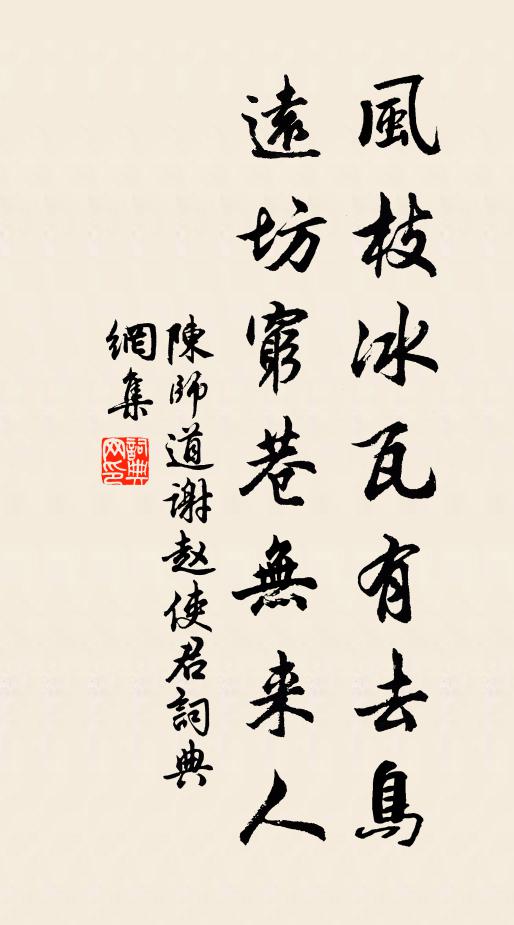 風枝冰瓦有去鳥
遠坊窮巷無来人
陳師道謝赵使君詞典
網集
詞典網印